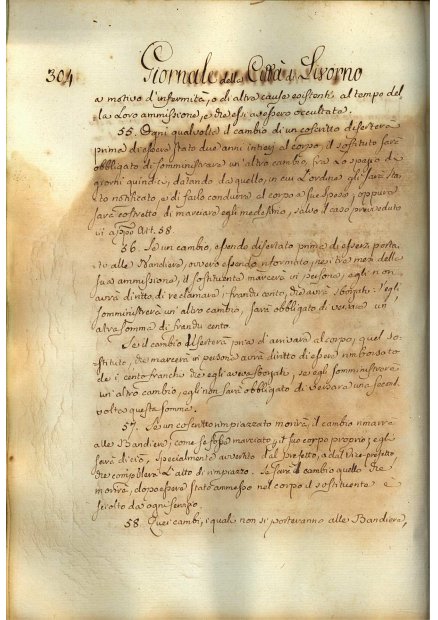 304 Giornale della Città di Livorno
a motivo d'infermità, o di altra cause esistenti al tempo del
la Loro ammissione, e che essi avessero occultata.
55. Ogni qualvolta il cambio di un coscritto diserterà
prima d'essere stato due anni intieri al corpo, il sostituto sarà
obbligato di somministrare un'altro cambio, fra lo spazio di
giorni quindici, datando da quello, in cui l'ordine gli sarà sta
to notificato, e di farlo condurre al corpo a sue spese, oppure
sarà costretto di marciare egli medesimo, salvo il caso prevveduto
in appo Art. 58.
56. Se un cambio, essendo disertato prima di essere porta
to alle Bandiere, ovvero essendo riformato, nei tre mesi della
sua ammissione, il sostituente marcerà in persona, egli non
avrà diritto di reclamare i franchi cento, che avrà sborzati: s'egli
somministrerà un'altro cambio, sarà obbligato di versare un
altra somma di franchi cento.
Se il cambio diserterà pria d'arrivare al corpo, quel so
stituito, che marcerà in persona avrà diritto di essere rimborsato
de i cento franchi che egli aveva sborzati, se egli somministrerà
un'altro cambio, egli non sarà obbligato di versare una seconda
volta questa somma.
57. Se un coscritto rimpiazzato morirà, il cambio rimarrà
alle Bandiere, come se fosse marciato, il suo corpo proprio; e gli
sarà di ciò, specialmente avvertito dal prefetto, o dal Vice-prefetto,
che compilerà l'atto di rimpiazzo. Se sarà il cambio quello che
morirà, dopo essere stato ammesso nel corpo il sostituente è
sciolto da ogni servizio.
58. Quei cambi, i quali non si porteranno alle Bandiere,